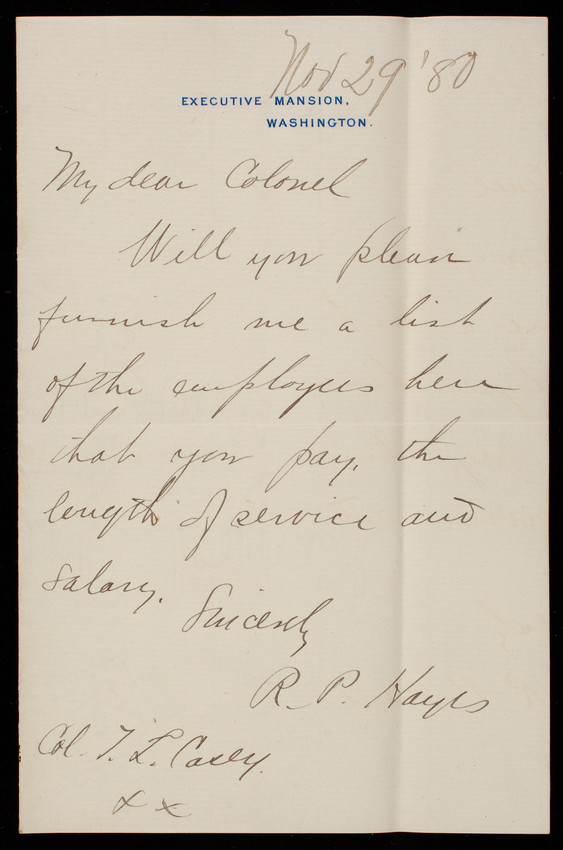 Nov 29 '80
EXECUTIVE MANSION,
WASHINGTON.
My dear Colonel
Will you please
furnish me a list
of the employees here
that you pay, the
length of service and
salary.
Sincerely
R. P. Hayes
Col. T. L. Casey.
x x